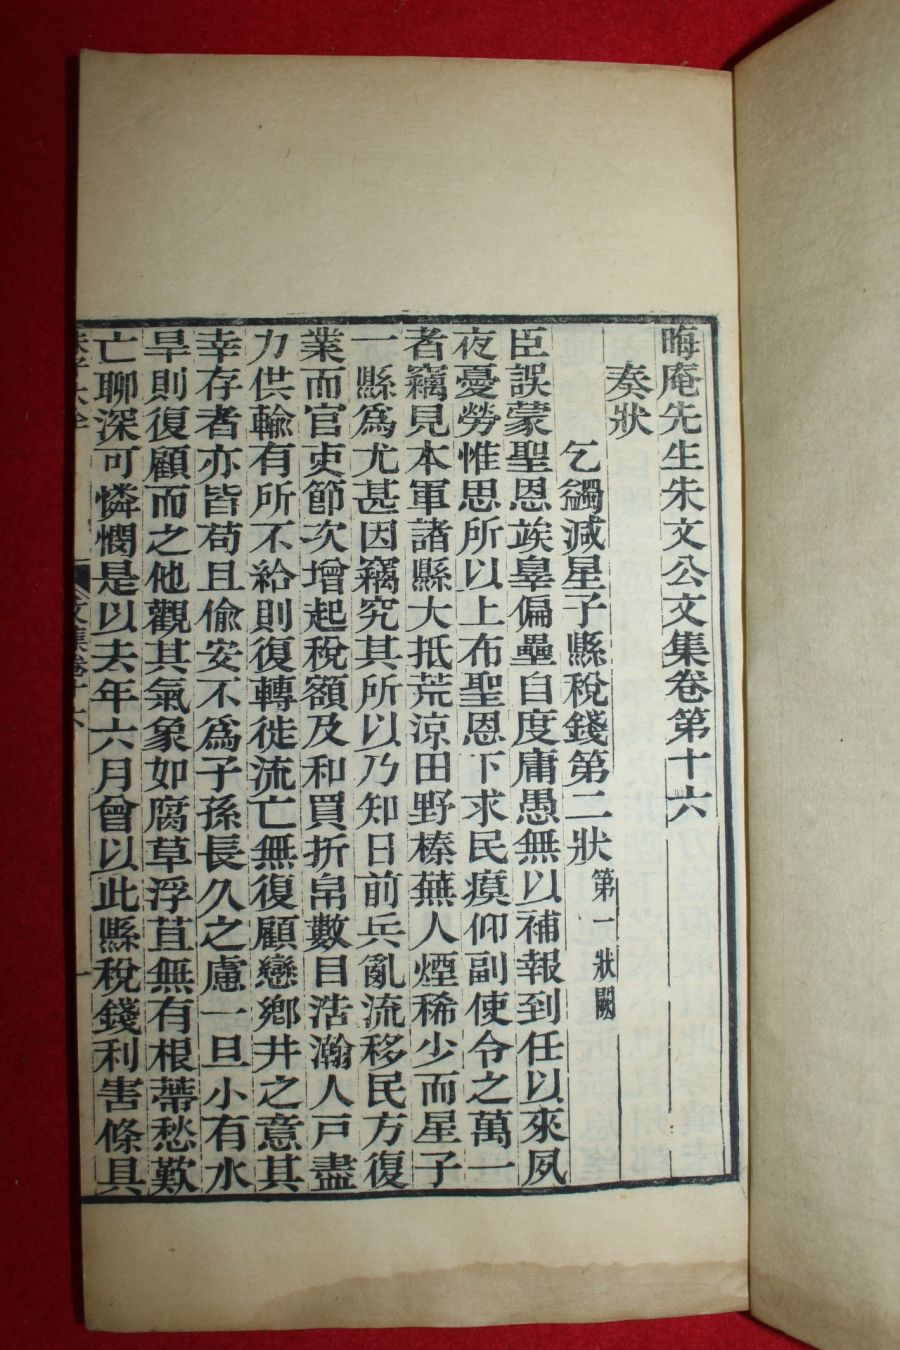 晦庵先生朱文公文集卷第十六
奏狀
乞蠲減星子縣稅錢第二狀 第一狀闕
臣誤蒙聖恩竢辠偏壘自度庸愚無以補報到任以來夙
夜憂勞惟思所以上布聖恩下求民瘼仰副使令之萬一
者竊見本軍諸縣大抵荒涼田野榛蕪人煙稀少而星子
一縣爲尤甚因竊究其所以乃知日前兵亂流移民方復
業而官吏節次增起稅額及和買折帛數目浩瀚人戶盡
力供輸有所不給則復轉徙流亡無復顧戀鄉井之意其
幸存者亦皆苟且偷安不爲子孫長久之慮一旦小有水
旱則復顧而之他觀其氣象如腐草浮苴無有根蒂愁歎
亡聊深可憐憫是以去年六月曾以此縣稅錢利害條具
文集卷十六
一